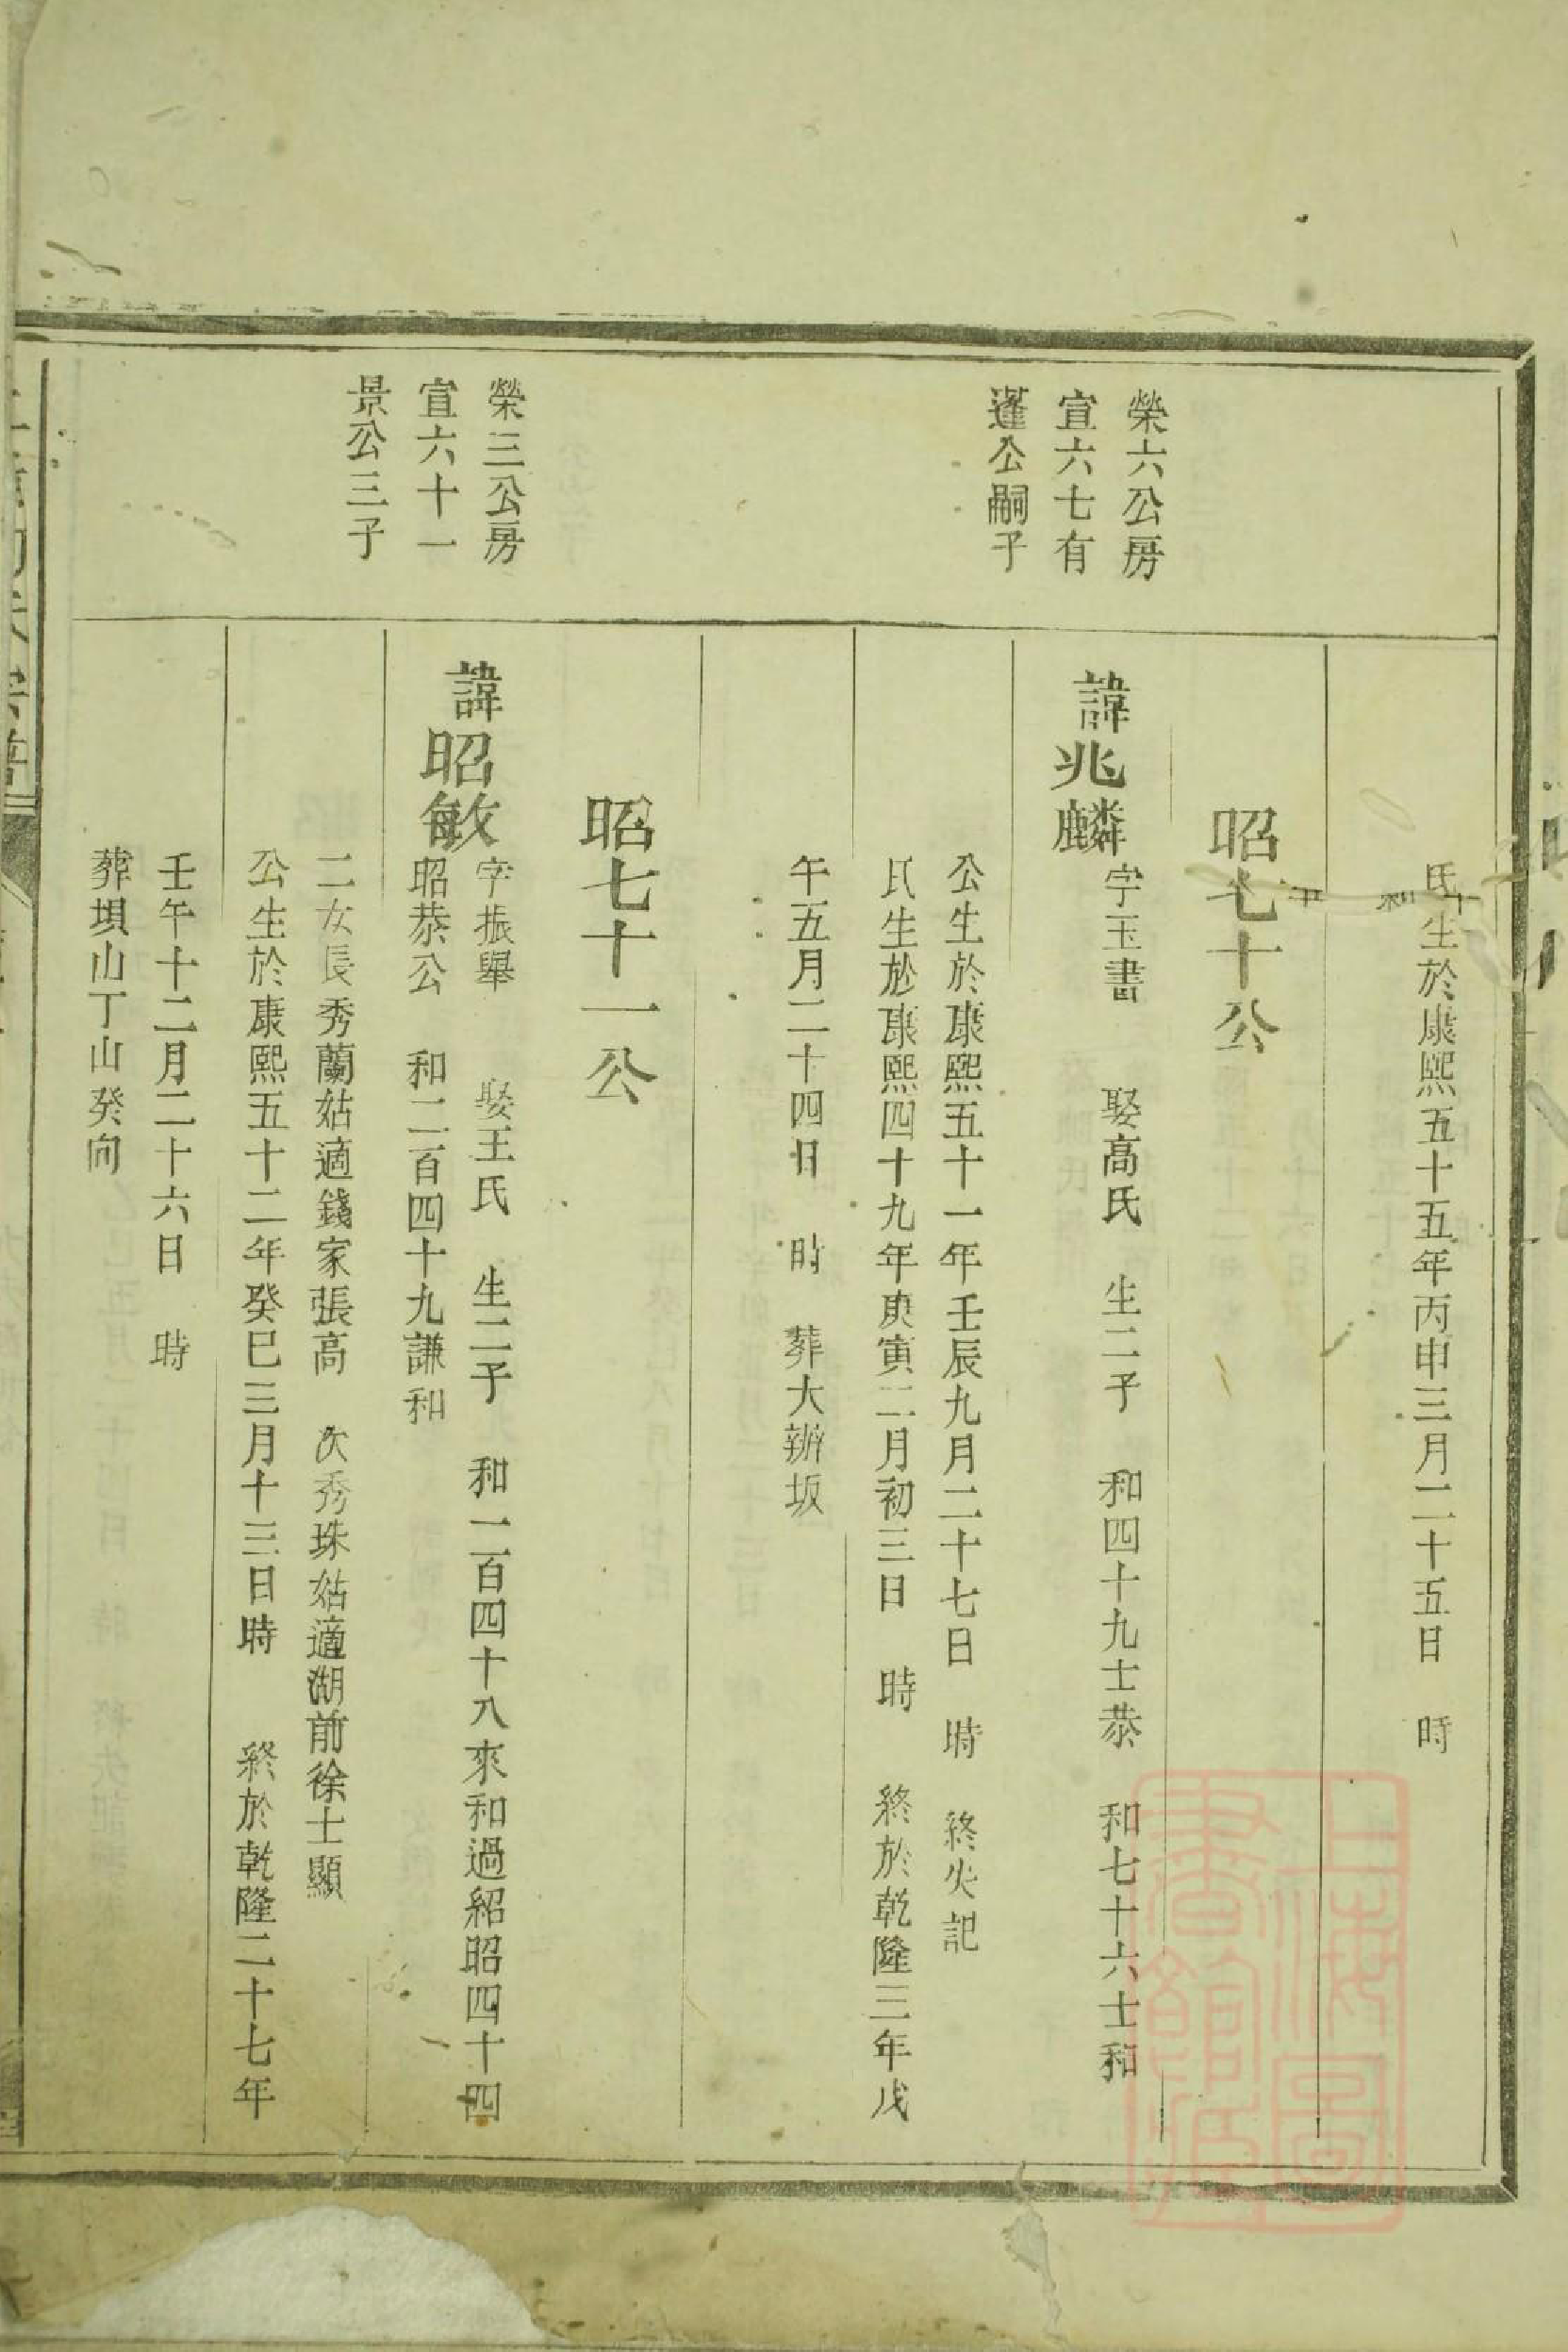 氏生於康熙五十五年丙申三月二十五日　時
昭七十公
榮六公房
宣六七有
蓬公嗣子
諱兆麟
字玉書　娶高氏　生二子　和四十九士恭　和七十六士和
公生於康熙五十一年壬辰九月二十七日　時　終失記
氏生於康熙四十九年庚寅二月初三日　時　終於乾隆三年戊
午五月二十四日　時　葬大辦坂
昭七十一公
榮三公房
宣六十一
景公三子
諱昭敏
字振舉　娶王氏　生二子　和一百四十八來和過紹昭四十四
昭恭公　和二百四十九謙和
二女長秀蘭姑適錢家張高　次秀珠姑適湖前徐士顯
公生於康熙五十二年癸巳三月十三日時　終於乾隆二十七年
壬午十二月二十六日　時
葬垻山丁山癸向
上海圖
書館藏